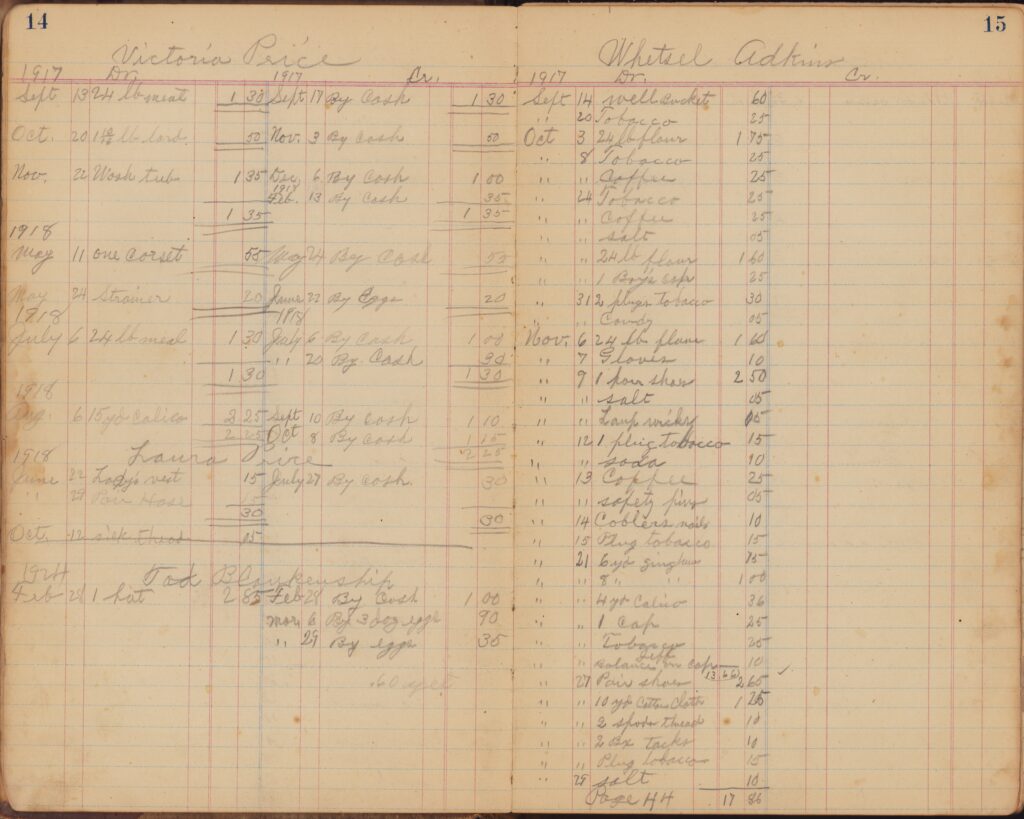 14
Victoria Price
1917 Dr. 1917 Cr.
Sept 13 24 lb meat 1 30 Sept 17 By Cash 1 30
Oct. 20 lb lard. 50 Nov. 3 By Cash 50
Nov. 22 Wash tub 1 35 Dec 6 By Cash 1 00
1918
Feb. 13 By Cash 35
1 35 1 35
1918
May 11 one corset 55 May 24 By Cash 55
May 24 Strainer 20 June 22 By Eggs 20
1918 1918
July 6 24 lb meal 1 30 July 6 By Cash 1 00
" 20 By Cash 30
1 30 1 30
1918
Aug. 6 15 yd Calico 2 25 Sept 10 By Cash 1 10
2 25 Oct 8 By Cash 1 15
2 25
1918 Laura Price
June 22 Lady's vest 15 July 27 By Cash. 30
" 29 Pair Hose 15
30 30
Oct. 12 silk thread 15
1924 Tod Blankenship
Feb 28 1 hat 2 85 Feb 28 By Cash 1 00
Mar 6 By 3 doz eggs 90
" 29 By eggs 35
.60 yet
15
Whetsel Adkins
1917 Dr. Cr.
Sept 14 well bucket 60
" 20 Tobacco 25
Oct 3 24 lb flour 1 75
" 8 Tobacco 25
" " Coffee 25
" 24 Tobacco 25
" " Coffee 25
" " salt 05
" " 24 lb flour 1 60
" " 1 Boy's cap 25
" 31 2 plugs tobacco 30
" " Candy 05
Nov. 6 24 lb. flour 1 60
" 7 Gloves 10
" 9 1 pair shoes 2 50
" " salt 05
" " Lamp wicks 05
" 12 1 plug tobacco 15
" " soda 10
" 13 Coffee 25
" " safety pins 05
" 14 Coblers nails 10
" 15 Plug tobacco 15
" 21 6 yd gingham 75
" " 8 " " 1 00
" " 4 yd Calico 36
" " 1 Cap 25
" " Tobacco 25
" " balance on cap 10
13 66
" 27 Pair shoes 2 65
" " 10 yd Cotton Cloth 1 25
" " 2 spools thread 10
" " 2 Bx tacks 10
" " Plug tobacco 15
" 29 salt 10
Page 44 17 86